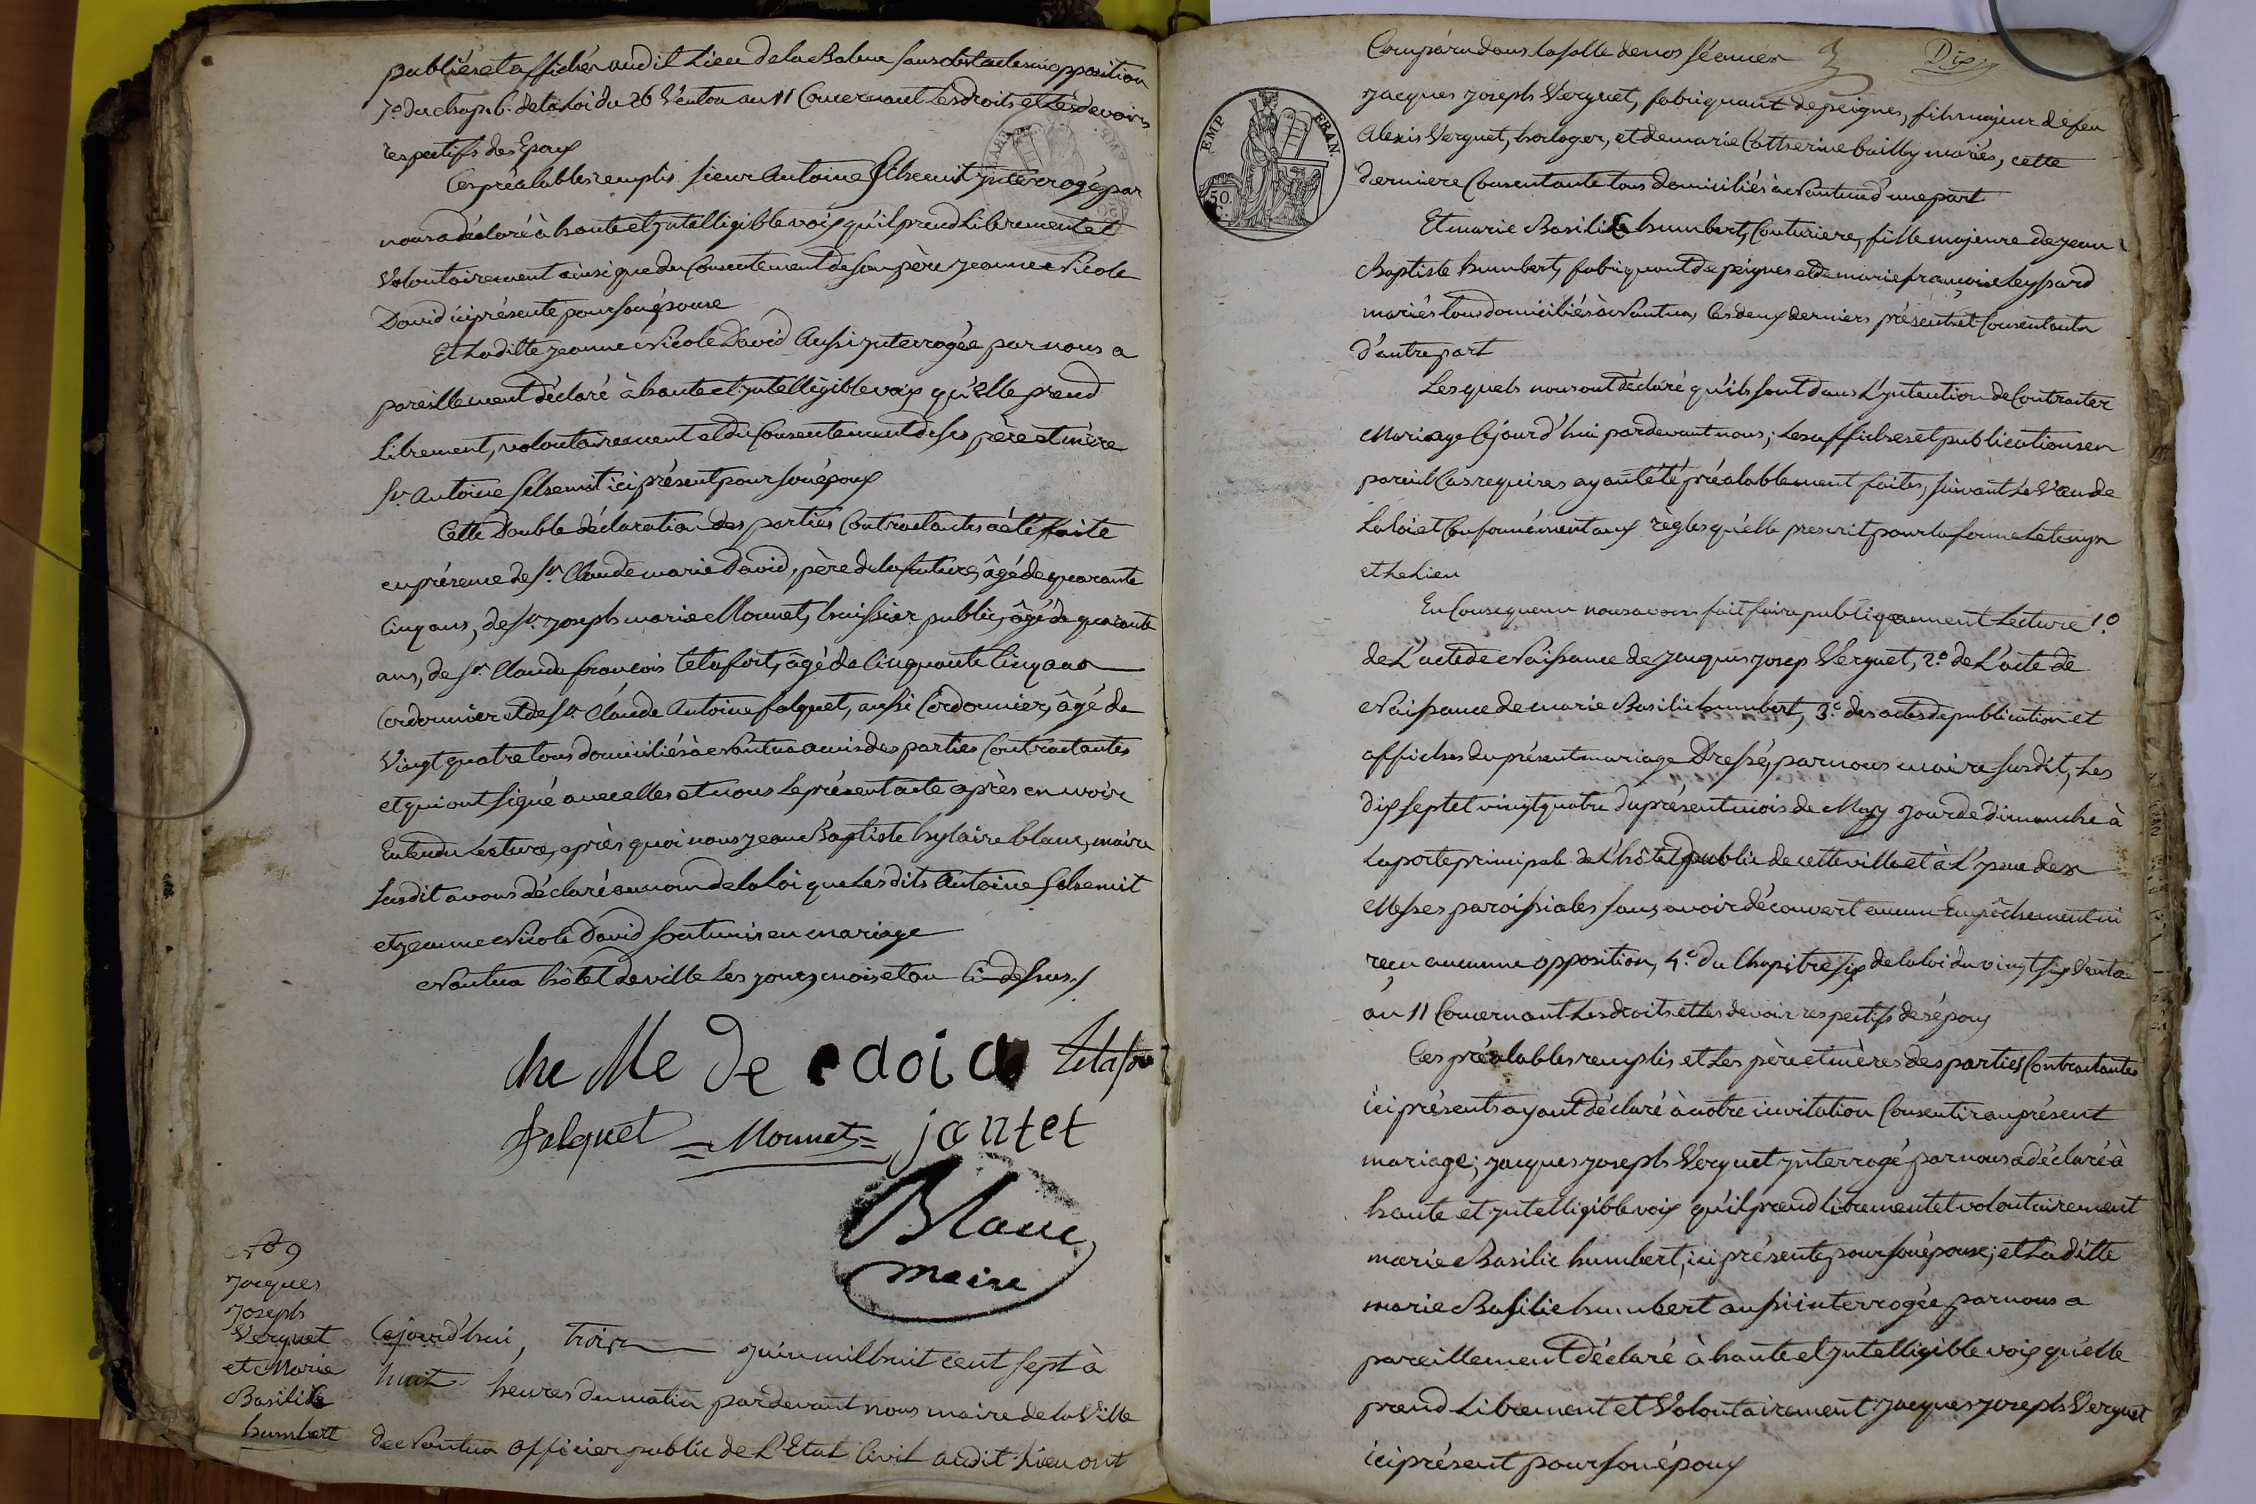 publiés et affichés audit Lieu de la Balme sans obstacles ni opposition
7.o du chap. 6. de la Loi du 26 Ventose an 11 Concernant Les droits et Les devoirs
respectifs des Epoux
Ces préalables remplis sieur Antoine Selsemit ynterrogé par
nous a déclaré à haute et yntelligible voix qu'il prend Librement et
Volontairement ainsi que du Consentement de son père jeanne Nicole
David ici présente pour son épouse
Et Ladille jeanne Nicole David Aussi ynterrogée par nous a
pareillement déclaré à haute et yntelligible voix qu'Elle prend
Librement, volontairement et du Consentement de ses père et mère
Sr. Antoine Selsemit ici présent pour son époux
Cette Double déclaration des parties Contractantes a été faite
en présence de Sr. Claude marie David, père de la future, âgé de quarante
Cinq ans, de Sr. joseph marie Monnet, huissier public, âgé de quarante
ans, de Sr. Claude françois telafort, âgé de Cinquante Cinq ans
Cordonnier et de Sr. Claude Antoine falquet, aussi Cordonnier, âgé de
Vingt quatre tous domiciliés à Nantua amis des parties Contractantes
et qui ont signé avec elles et nous Le présent acte après en avoir
Entendu Lecture, après quoi nous jean Baptiste hylaire blanc, maire
susdit avons déclaré au nom de la Loi que Les dits Antoine Selsemit
et jeanne Nicole David sont unis en mariage
Nantua hôtel de ville Les jour, mois et an Ci-dessus
Falquet = Monnet = jantet
Blanc
maire
No 9
Jacques
Joseph
Verguet
et Marie
Basilide
humbert
Cejourd'hui, trois juin mil huit cent sept à
huit heures du matin pardevant nous maire de la Ville
de Nantua officier public de L'Etat Civil audit Lieu ont
Dix
Comparu dans la salle de nos séances
EMP. FRAN.
50
C.
jacques joseph Verguet, fabriquant de peignes, fils majeur de feu
Alexis Verguet, horloger, et de marie Catherine bailly mariés, cette
derniere Consentante tous domiciliés à Nantua d'une part
Et marie Basilide humbert, Couturiere, fille majeure de jean
Baptiste humbert, fabriquant de peignes et de marie françoise leyssard
mariés tous domiciliés à Nantua, Les deux derniers présents et Consentants
d'autre part
Lesquels nous ont déclaré qu'ils sont dans L'yntention de Contracter
Mariage Cejourd'hui pardevant nous ; Les affiches et publications en
pareil Cas requises ayant été préalablement faites, suivant Le Vœu de
La loi et Conformément aux règles qu'elle prescrit pour la forme Le temps
et Le Lieu
En Consequence nous avons fait faire publiquement Lecture 1.o
de L'acte de Naissance de jacques josep Verguet, 2.o de L'acte de
Naissance de marie Basilie humbert, 3.o des actes de publication et
affiches du présent mariage Dressés par nous maire susdit, Les
dix sept et vingt quatre du présent mois de May jour de Dimanche à
La porte principale de L'hôtel public de cette ville et à L'yssue des
Messes paroissiales sans avoir découvert aucun Empêchement ni
reçu aucune opposition, 4.o du Chapitre six de la loi du vingt six Ventose
an 11 Concernant Les droits et Les devoirs respectifs des époux
Ces préalables remplis et Les père et mères des parties Contractantes
ici présents ayant déclaré à notre invitation Consentir au présent
mariage ; jacques joseph Verguet ynterrogé par nous a déclaré à
haute et yntelligible voix qu'il prend librement et volontairement
marie Basilie humbert, ici présente, pour son épouse ; et Ladille
marie Basilie humbert aussi interrogée par nous a
pareillement déclaré à haute et yntelligible voix qu'elle
prend Librement et Volontairement jacques joseph Verguet
ici présent pour son époux